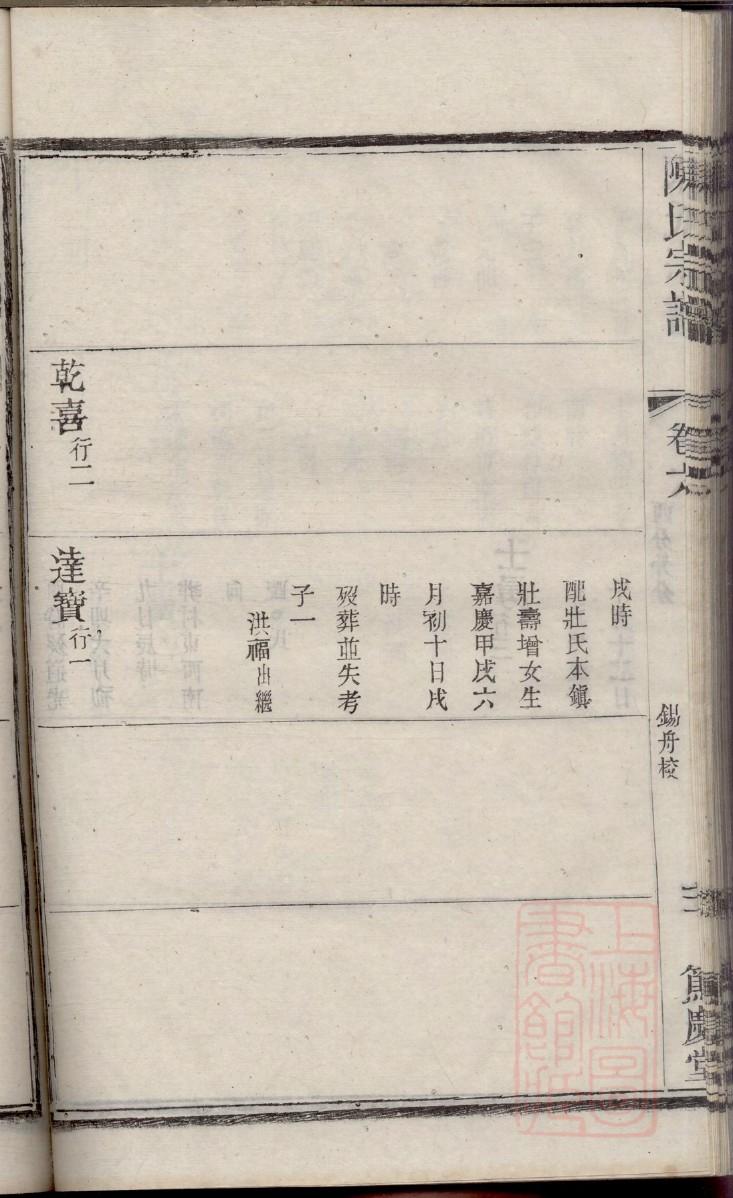 陳氏宗譜
卷六
錫舟校
篤慶堂
乾喜行二
戌時
配壯氏本鎮
壯壽增女生
嘉慶甲戌六
月初十日戌
時
歿葬並失考
子一
洪福出繼
達寶行一
上海圖
書館藏